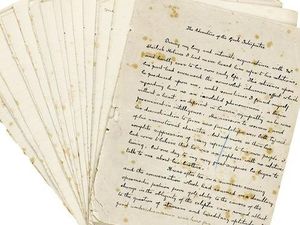 The Adventure of the Greek Interpreter
During my long and intimate acquaintance with Mr
Sherlock Holmes I had never heard him refer to his relations
and hardly ever to his own early life. This reticence upon
his part had increased the somewhat inhuman effect which
he produced upon me, until sometimes I found myself
regarding him as an isolated phenomenon, a brain
without a heart, as deficient in human sympathy as he was
preeminent in intelligence. His aversion to women and
his disinclination to form new friendships were both typical
of his unemotional character, but not more so than his
complete suppression of every reference to his own people. I
had come to believe that he was an orphan with no relatives
living, but one day to my very great surprise he began to
talk to me about his brother.
It was after tea on a summer evening
and the conversation which had roamed in a desultory
spasmodic fashion from golf clubs to the causes of the
change in the obliquity of the ecliptic came round at last
to the question of atavism and hereditary aptitudes